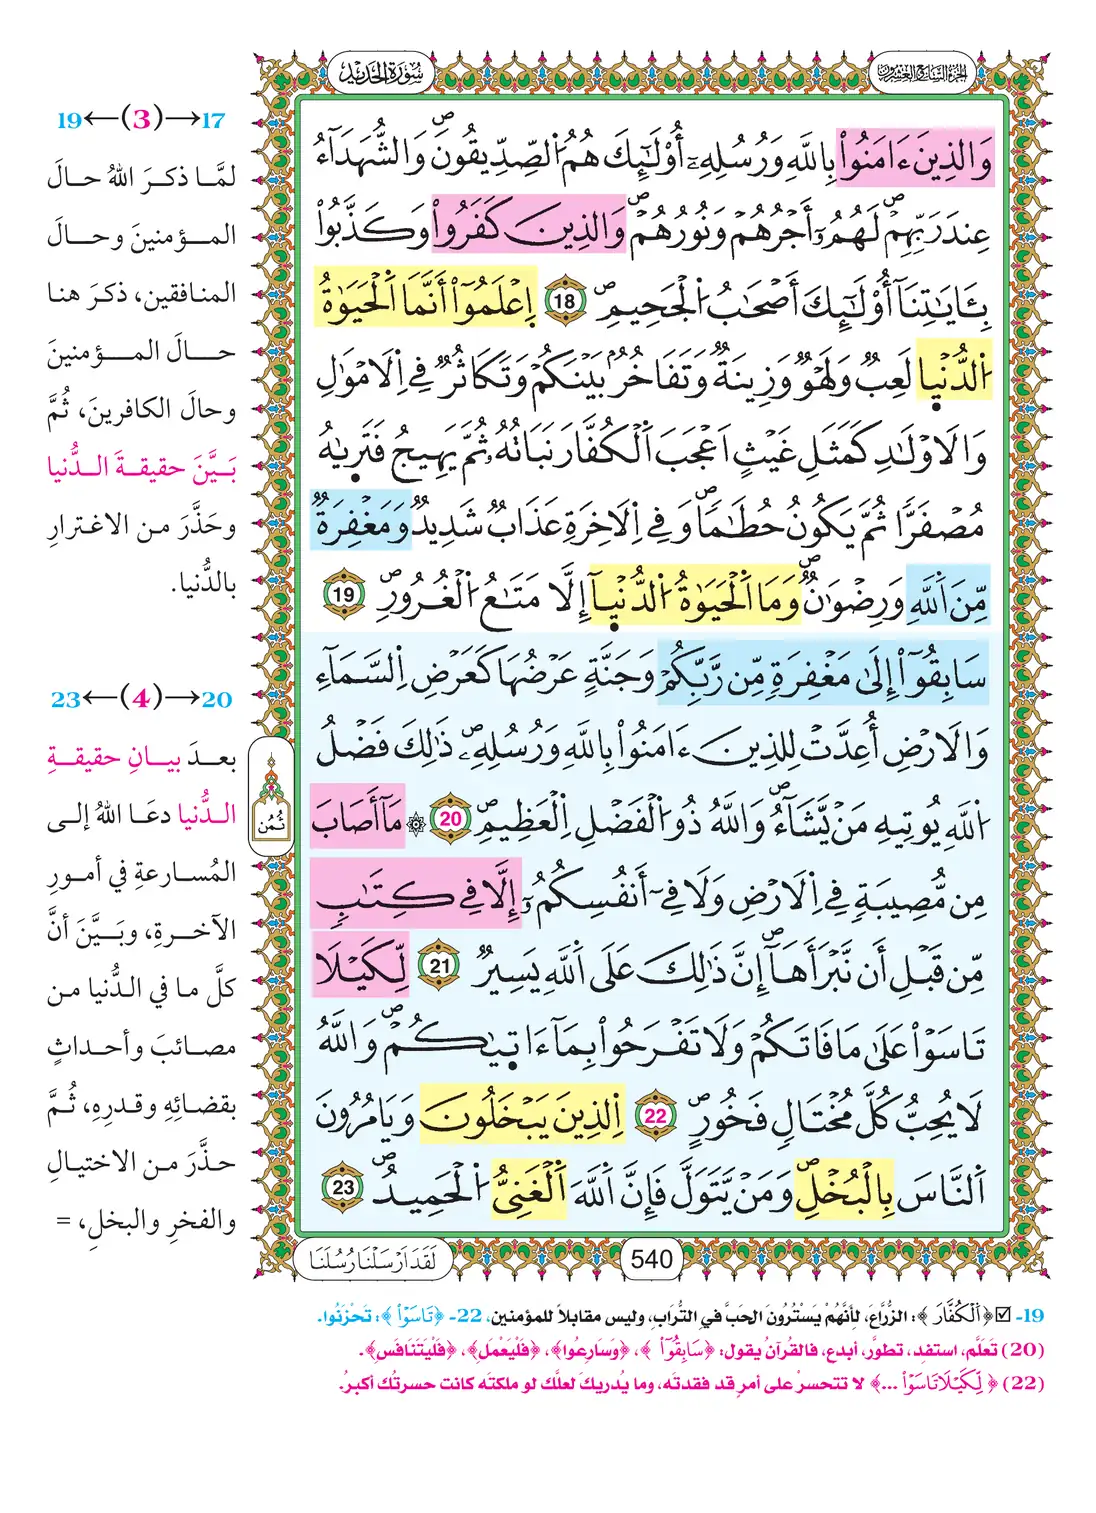 سُورَةُ الحَدِيدِ
الجزء السابع والعشرون
وَالذِينَ ءَامَنُواْ بِاللَّهِ وَرُسُلِهِۦٓ أُوْلَٰٓئِكَ هُمُ اُ۬لصِّدِّيقُونَۖ وَالشُّهَدَآءُ
عِندَ رَبِّهِمْۖ لَهُمُۥٓ أَجْرُهُمْ وَنُورُهُمْۖ وَالذِينَ كَفَرُواْ وَكَذَّبُواْ
بِـَٔايَٰتِنَآ أُوْلَٰٓئِكَ أَصْحَٰبُ اُ۬لْجَحِيمِۖ 18 اِ۪عْلَمُوٓاْ أَنَّمَا اَ۬لْحَيَوٰةُ
اُ۬لدُّنْي۪ا لَعِبٞ وَلَهْوٞ وَزِينَةٞ وَتَفَاخُرُۢ بَيْنَكُمْ وَتَكَاثُرٞ فِے اِ۬لَامْوَٰلِ
وَالَاوْلَٰدِ كَمَثَلِ غَيْثٍ اَعْجَبَ اَ۬لْكُفَّارَ نَبَاتُهُۥ ثُمَّ يَهِيجُ فَتَر۪يٰهُ
مُصْفَرّاٗ ثُمَّ يَكُونُ حُطَٰماٗۖ وَفِے اِ۬لَاخِرَةِ عَذَابٞ شَدِيدٞ وَمَغْفِرَةٞ
مِّنَ اَ۬للَّهِ وَرِضْوَٰنٞۖ وَمَا اَ۬لْحَيَوٰةُ اُ۬لدُّنْي۪آ إِلَّا مَتَٰعُ اُ۬لْغُرُورِۖ 19
سَابِقُوٓاْ إِلَىٰ مَغْفِرَةٖ مِّن رَّبِّكُمْ وَجَنَّةٍ عَرْضُهَا كَعَرْضِ اِ۬لسَّمَآءِ
وَالَارْضِ أُعِدَّتْ لِلذِينَ ءَامَنُواْ بِاللَّهِ وَرُسُلِهِۦۖ ذَٰلِكَ فَضْلُ
اُ۬للَّهِ يُوتِيهِ مَنْ يَّشَآءُۖ وَاللَّهُ ذُو اُ۬لْفَضْلِ اِ۬لْعَظِيمِۖ 20 ۞ مَآ أَصَابَ
مِن مُّصِيبَةٖ فِے اِ۬لَارْضِ وَلَا فِےٓ أَنفُسِكُمُۥٓ إِلَّا فِے كِتَٰبٖ
مِّن قَبْلِ أَن نَّبْرَأَهَآۖ إِنَّ ذَٰلِكَ عَلَى اَ۬للَّهِ يَسِيرٞ 21 لِّكَيْلَا
تَاسَوْاْ عَلَىٰ مَا فَاتَكُمْ وَلَا تَفْرَحُواْ بِمَآ ءَات۪يٰكُمْۖ وَاللَّهُ
لَا يُحِبُّ كُلَّ مُخْتَالٖ فَخُورٍۖ 22 اِ۬لذِينَ يَبْخَلُونَ وَيَامُرُونَ
اَ۬لنَّاسَ بِالْبُخْلِۖ وَمَنْ يَّتَوَلَّ فَإِنَّ اَ۬للَّهَ اَ۬لْغَنِيُّ اُ۬لْحَمِيدُۖ 23
ثُمُن
لَقَدَ اَرْسَلْنَا رُسُلَنَا
540
19←(3)→17
لمَّا ذكرَ اللهُ حالَ
المؤمنينَ وحالَ
المنافقين، ذكرَ هنا
حالَ المؤمنينَ
وحالَ الكافرينَ، ثُمَّ
بَيَّنَ حقيقةَ الدُّنيا
وحَذَّرَ من الاغترارِ
بالدُّنيا.
23←(4)→20
بعدَ بيانِ حقيقةِ
الدُّنيا دعَا اللهُ إلى
المُسارعةِ في أمورِ
الآخرةِ، وبَيَّنَ أنَّ
كلَّ ما في الدُّنيا من
مصائبَ وأحداثٍ
بقضائِهِ وقدرِهِ، ثُمَّ
حذَّرَ من الاختيالِ
والفخرِ والبخلِ، =
19- ☑ ﴿اَ۬لْكُفَّارَ﴾: الزُّرَّاعَ، لأنَّهُمْ يَسْتُرُونَ الحَبَّ في التُّرابِ، وليس مقابلاً للمؤمنين، 22- ﴿تَاسَوْاْ﴾: تَحْزَنُوا.
(20) تَعَلَّم، استفِد، تطوَّر، أبدع، فالقُرآنُ يقول: ﴿سَابِقُوٓاْ﴾، ﴿وَسَارِعُوا﴾، ﴿فَلْيَعْمَلِ﴾، ﴿فَلْيَتَنَافَسِ﴾.
(22) ﴿لِّكَيْلَا تَاسَوْاْ ...﴾ لا تتحسرْ على أمرٍ قد فقدتَه، وما يُدريكَ لعلَّك لو ملكتَه كانت حسرتُك أكبرُ.